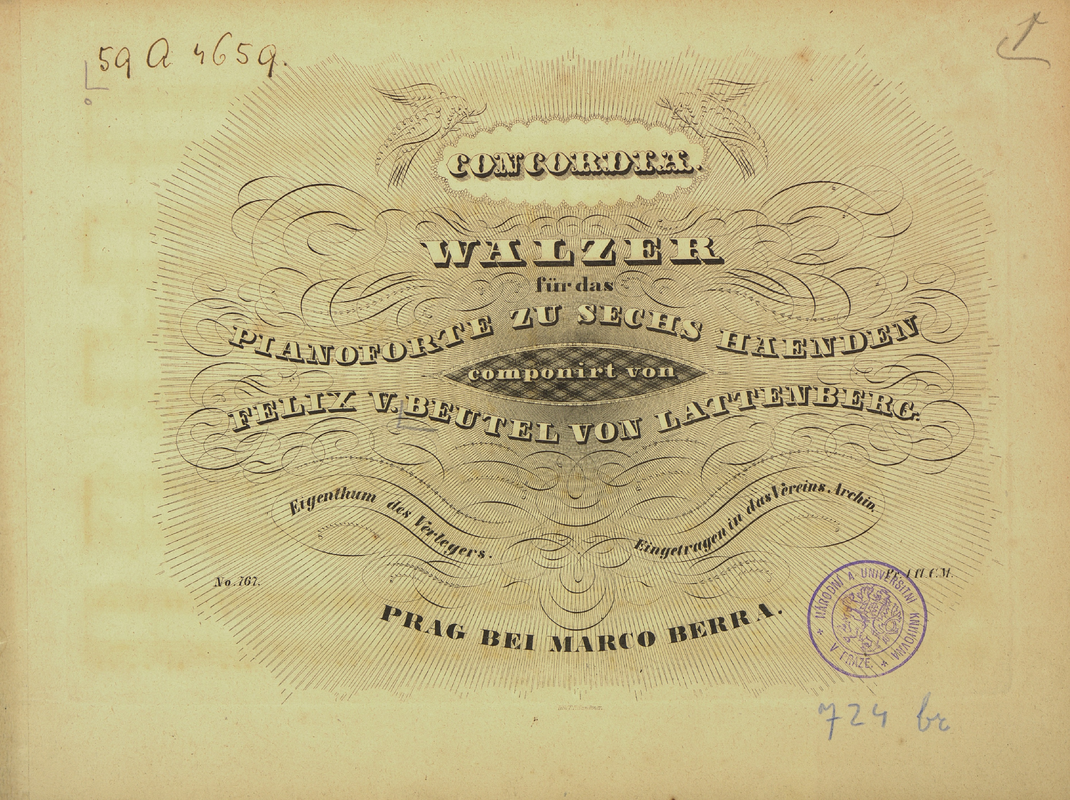 59 A 4659.
1
CONCORDIA.
WALZER
für das
PIANOFORTE ZU SECHS HAENDEN
componirt von
FELIX V. BEUTEL VON LATTENBERG.
Eigenthum des Verlegers.
Eingetragen in das Vereins. Archiv.
No. 767.
Pr. 1 Fl. C.M.
PRAG BEI MARCO BERRA.
* NÁRODNÍ A UNIVERSITNÍ KNIHOVNA * V PRAZE
724 br